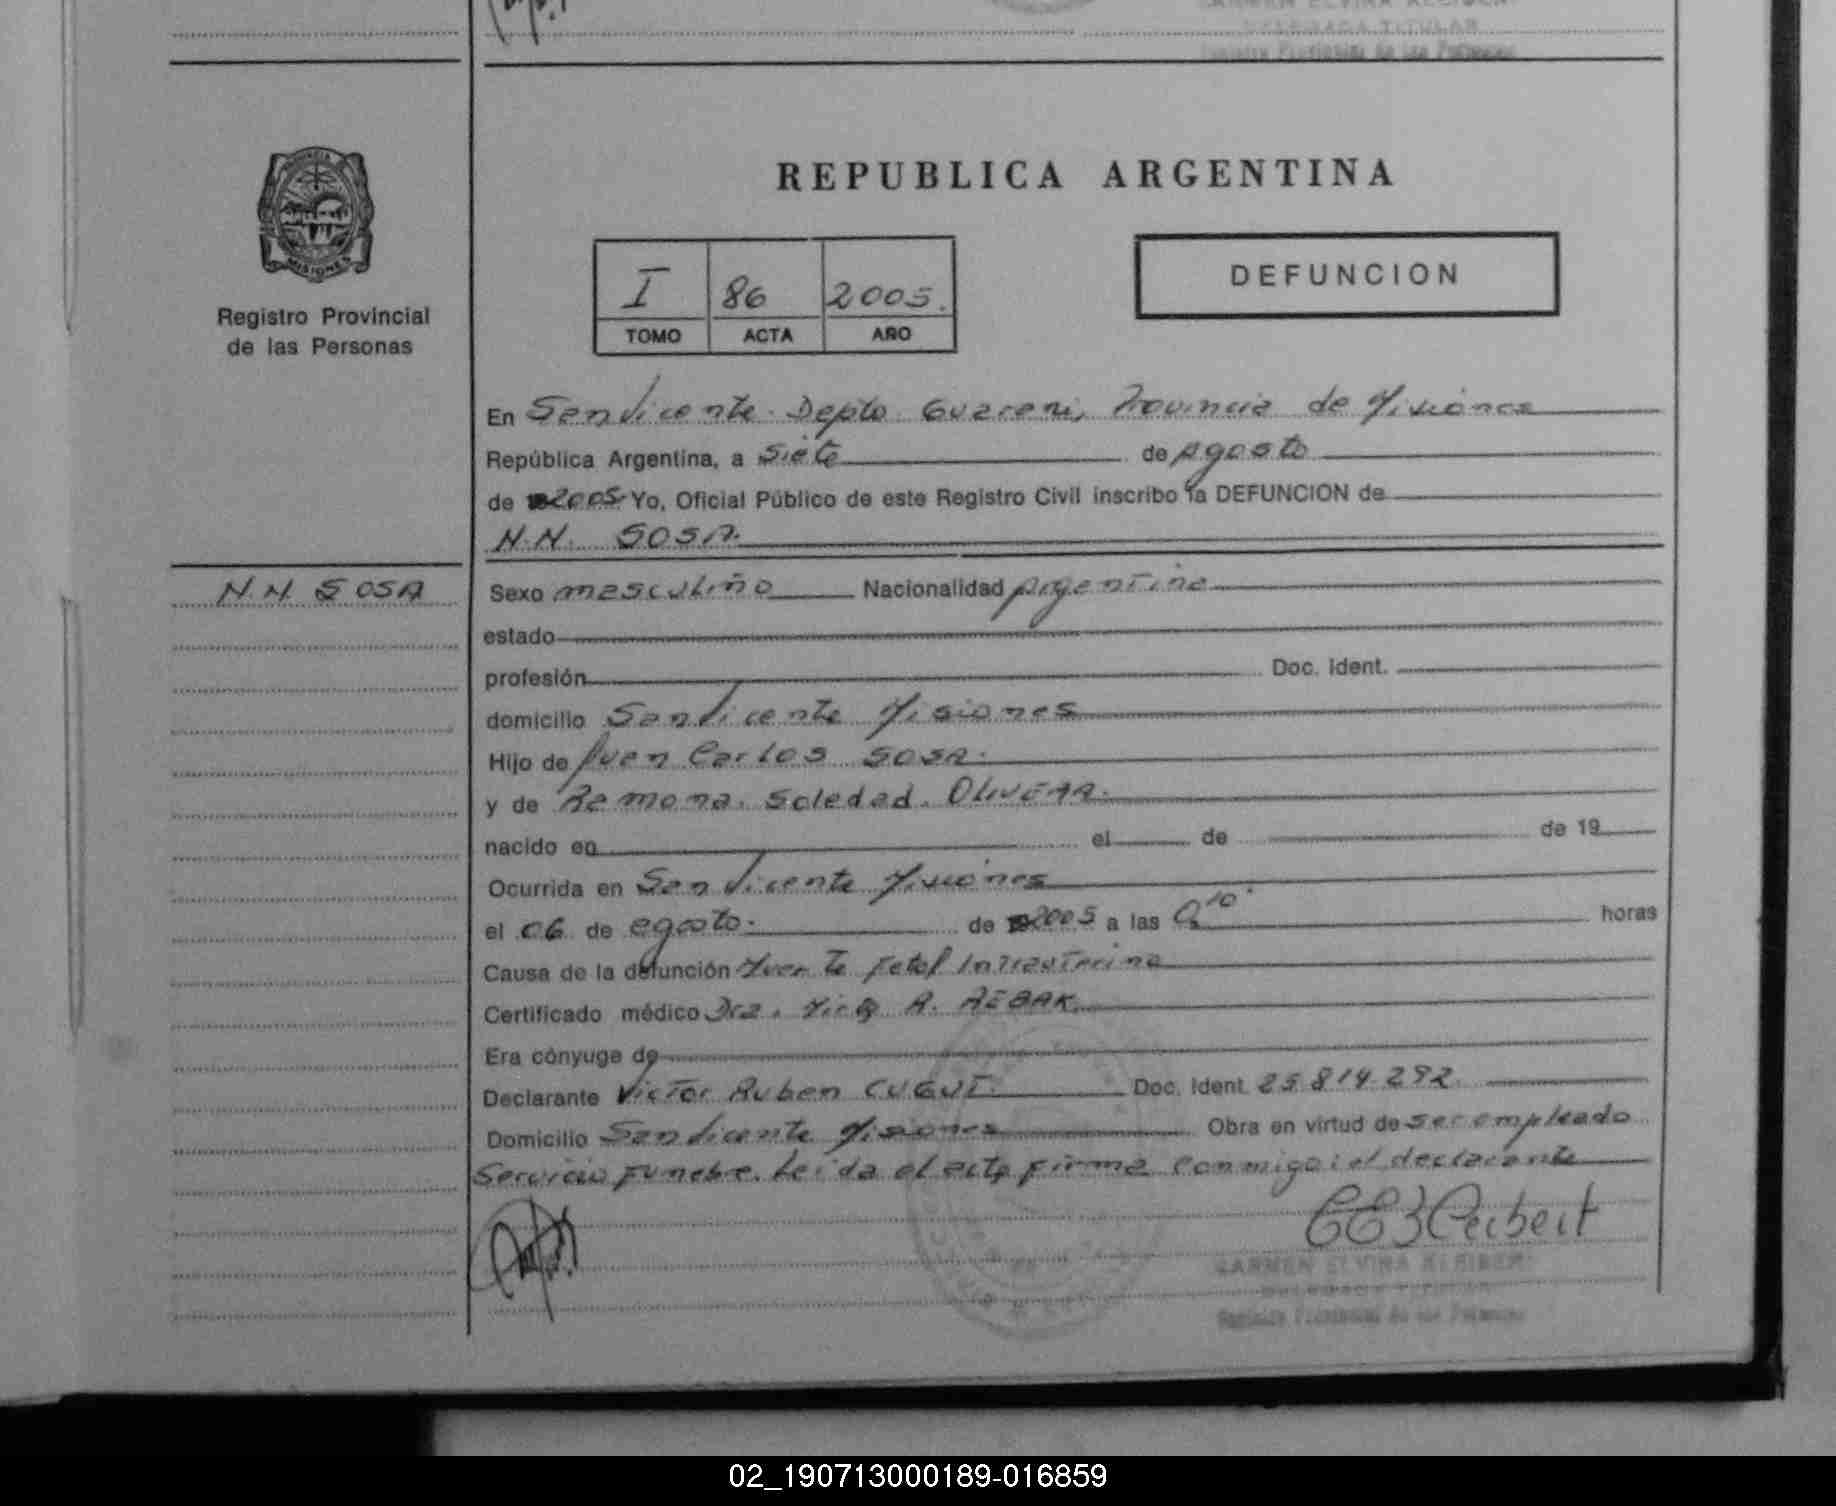 CARMEN ELVIRA
DELEGADA TITULAR
Registro Provincial de las Personas
MISIONES
Registro Provincial
de las Personas
REPUBLICA ARGENTINA
I 86 2005.
TOMO ACTA AÑO
DEFUNCION
En San Vicente Depto Guarani, Provincia de Misiones
República Argentina, a Siete de Agosto
de 2005 Yo, Oficial Público de este Registro Civil inscribo la DEFUNCION de
N.N. SOSA.
N.N. SOSA
Sexo masculino Nacionalidad Argentina
estado
profesión Doc. Ident.
domicilio San Vicente Misiones
Hijo de Juan Carlos SOSA.
y de Ramona Soledad OLIVERA.
nacido en el de de 19
Ocurrida en San Vicente Misiones
el 06 de agosto. de 2005 a las 0,10 horas
Causa de la defunción Muerte Fetal Intrauterina
Certificado médico Dra. A. REBAK
Era cónyuge de
Declarante Victor Ruben CUGUT. Doc. Ident. 25.814.292
Domicilio San Vicente Misiones Obra en virtud de ser empleado
Servicio Funebre. Leida el acta firma conmigo: el declarante
CARMEN ELVIRA
DELEGADA TITULAR
Registro Provincial de las Personas
02_190713000189-016859